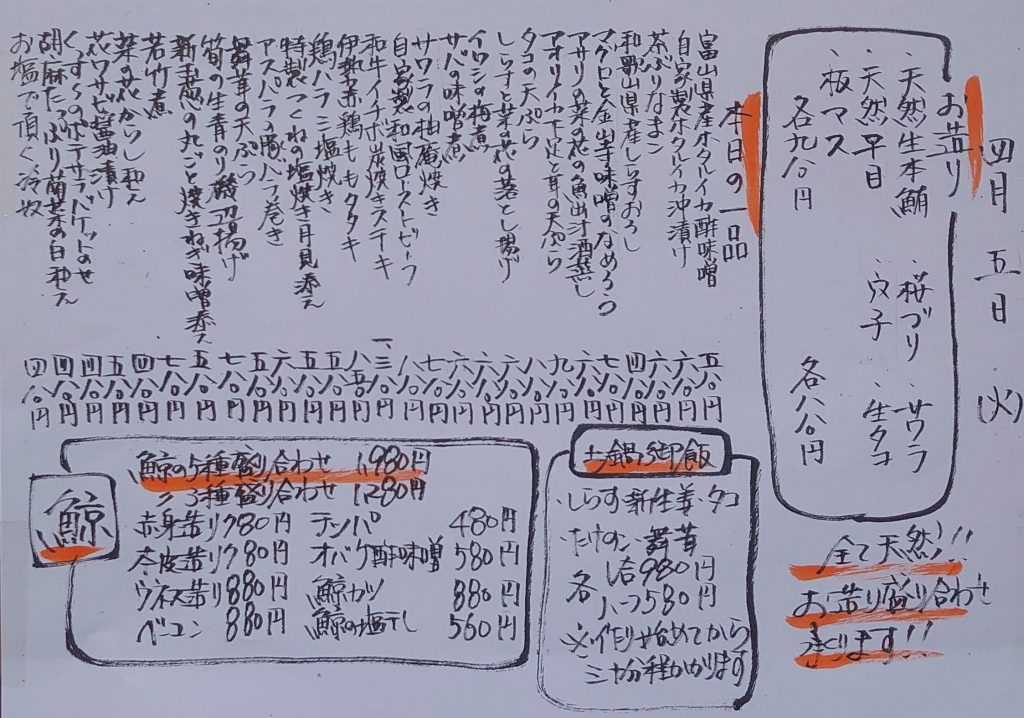 四月五日(火)
お造り
・天然生本鮪 ・桜ブリ ・サワラ
・天然早目 ・穴子 ・生タコ
・板マス
各九八〇円 各八八〇円
全て天然!!
お造り盛り合わせ
承ります!!
本日の一品
富山県産ホタルイカ酢味噌 五八〇円
自家製ホタルイカ沖漬け 六八〇円
茶ぶりなまこ 六八〇円
和歌山県産しらすおろし 四八〇円
マグロと金山寺味噌のなめろう 七八〇円
アサリと菜の花の魚出汁酒蒸し 六八〇円
アオリイカ下足と耳の天ぷら 九八〇円
タコの天ぷら 八八〇円
しらすと菜の花の落とし揚げ 六八〇円
イワシの梅煮 六八〇円
サバの味噌煮 六八〇円
サワラの柚庵焼き 七八〇円
自家製和風ローストビーフ 八八〇円
和牛イチボ炭焼きステーキ 一三八〇円
伊勢赤鶏もも タタキ 八五〇円
鶏ハラミ塩焼き 五八〇円
特製つくねの塩焼き月見添え 五八〇円
アスパラの豚バラ巻き 六八〇円
舞茸の天ぷら 五八〇円
筍の生青のり磯辺揚げ 七八〇円
新玉葱の丸ごと焼きねぎ味噌添え 五八〇円
若竹煮 七八〇円
菜の花からし和え 四八〇円
花ワサビ醤油漬け 五八〇円
くんすたまのポテサラバケットのせ 四八〇円
胡麻たっぷり菊菜の白和え 四八〇円
お塩で頂く冷奴 四八〇円
土鍋御飯
・しらす・新生姜・タコ
・たけのこ・舞茸
各 1合980円
ハーフ580円
※炊き始めてから
三十分程かかります
鯨
鯨の5種盛り合わせ 1,980円
〃 3種盛り合わせ 1280円
赤身造り780円 テッパ 480円
本皮造り780円 オバケ酢味噌 580円
ウネス造り880円 鯨カツ 880円
ベーコン 880円 鯨の塩干し 560円